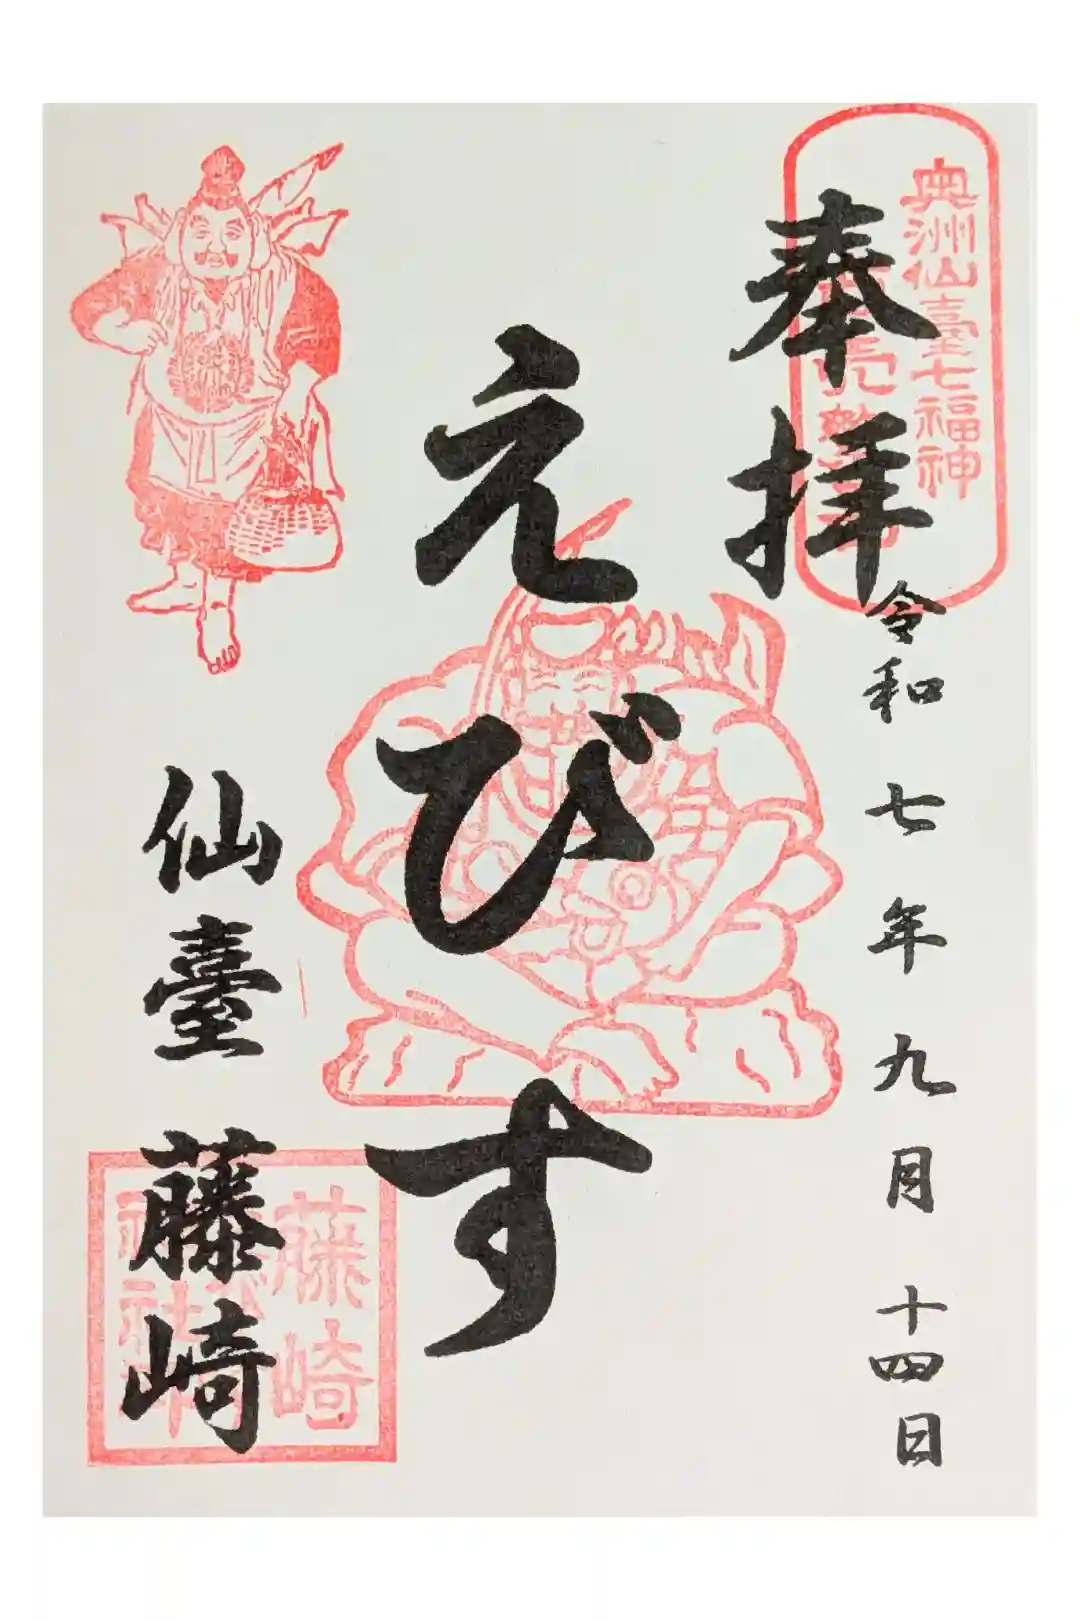 奥洲仙臺七福神
奉拝
令和七年九月十四日
えびす
仙臺藤崎
藤崎